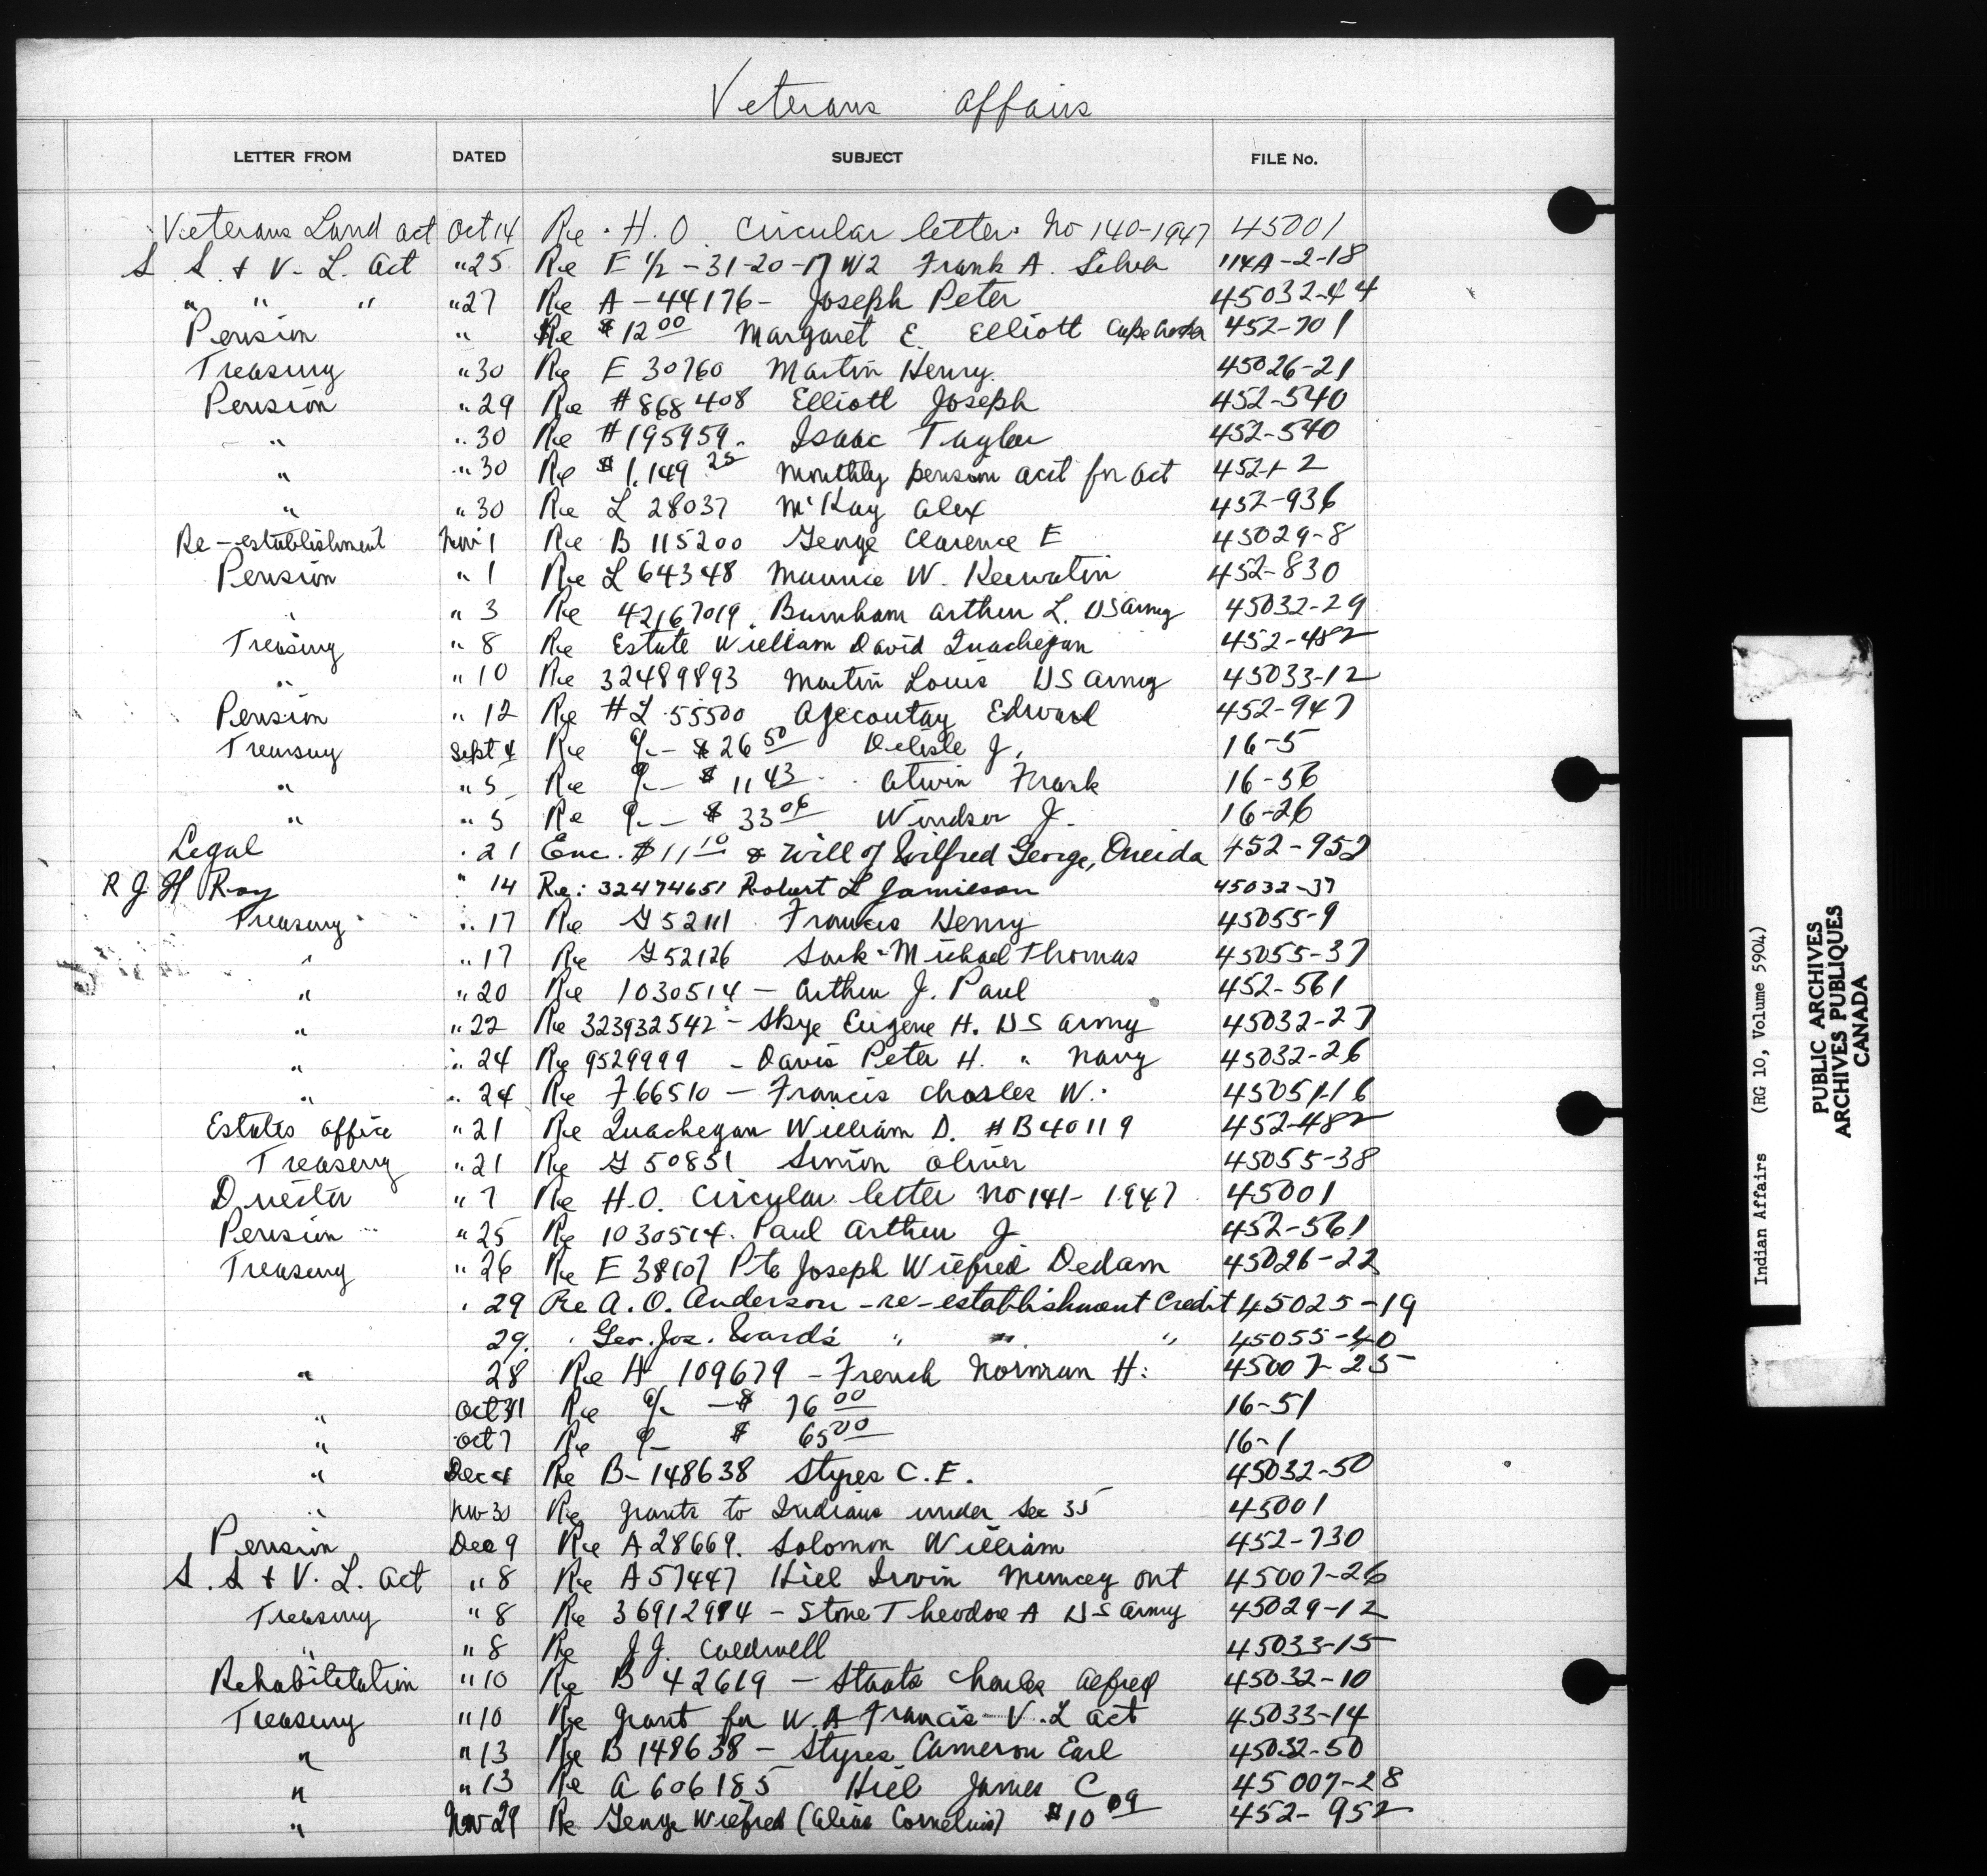 Veterans Affairs
LETTER FROM DATED SUBJECT FILE No.
Veterans Land Act Oct 14 Re. H.O. Circular letter. No 140-1947 45001
S. S. & V. L. Act " 25 Re E 1/2 -31-20-17 W2 Frank A. 114A-2-18
" " " " 27 Re A-44176- Joseph Peter 45032-44
Pension " Re $12 00 Margaret E. Elliott 452-701
Treasury " 30 Re E 30760 Martin Henry. 45026-21
Pension " 29 Re #868408 Elliott Joseph 452-540
" " 30 Re #195959. Isaac Taylor 452-540
" " 30 Re $1,149 25 Monthly pension acct for Oct 452-1-2
" " 30 Re L 28037 McKay Alex 452-936
Re-establishment Nov 1 Re B 115200 George Clarence E 45029-8
Pension " 1 Re L 64348 Maurice W. Keewatin 452-830
" " 3 Re 42167019. Burnham Arthur L. US Army 45032-29
Treasury " 8 Re Estate William David Quachegan 452-482
" " 10 Re 32489893 Martin Louis US Army 45033-12
Pension " 12 Re #L 55500 Ajecoutay Edward 452-947
Treasury Sept 4 Re a/c - $26 50 Delisle J. 16-5
" " 5 Re a/c - $11 43 Atwin Frank 16-56
" " 5 Re a/c - $33 06 Windsor J. 16-26
Legal " 21 Enc. $11 10 & Will of Wilfred George, Oneida 452-952
R J H Roy " 14 Re: 32474651 Robert L Jamieson 45032-37
Treasury " 17 Re G 52111 Francis Henry 45055-9
" " 17 Re G 52126 Sark-Michael Thomas 45055-37
" " 20 Re 1030514 - Arthur J. Paul 452-561
" " 22 Re 323932542 - Skye Eugene H. US Army 45032-27
" " 24 Re 9529999 - Davis Peter H. " Navy 45032-26
" " 24 Re F 66510 - Francis Charles W. 45051-16
Estates Office " 21 Re Quachegan William D. #B40119 452-482
Treasury " 21 Re G 50851 Simon Oliver 45055-38
Director " 7 Re H.O. Circular letter No 141-1947 45001
Pension " 25 Re 1030514. Paul Arthur J 452-561
Treasury " 26 Re E 38107 Pte Joseph Wilfred Dedam 45026-22
" 29 Re A. O. Anderson - re-establishment Credit 45025-19
29. " Geo. Jos. Ward's " " " 45055-40
" 28 Re H 109679 - French Norman H. 45007-25
" Oct 31 Re a/c - $76 00 16-51
" Oct 7 Re a/c $ 65 00 16-1
" Dec 4 Re B-148638 Styres C. E. 45032-50
" Nov 30 Re grants to Indians under Sec 35 45001
Pension Dec 9 Re A 28669. Solomon William 452-730
S. S & V. L. Act " 8 Re A 57447 Hill Irvin Muncey Ont 45007-26
Treasury " 8 Re 36912984 - Stone Theodore A US Army 45029-12
" " 8 Re J.J. Caldwell 45033-15
Rehabilitation " 10 Re B 42619 - Staats Charles Alfred 45032-10
Treasury " 10 Re Grant for W. A Francis - V. L Act 45033-14
" " 13 Re B 148638 - Styres Cameron Earl 45032-50
" " 13 Re A 606185 Hill James C 45007-28
" Nov 29 Re George Wilfred (alias Cornelius) $10 09 452-952
Indian Affairs (RG 10, Volume 5904)
PUBLIC ARCHIVES
ARCHIVES PUBLIQUES
CANADA